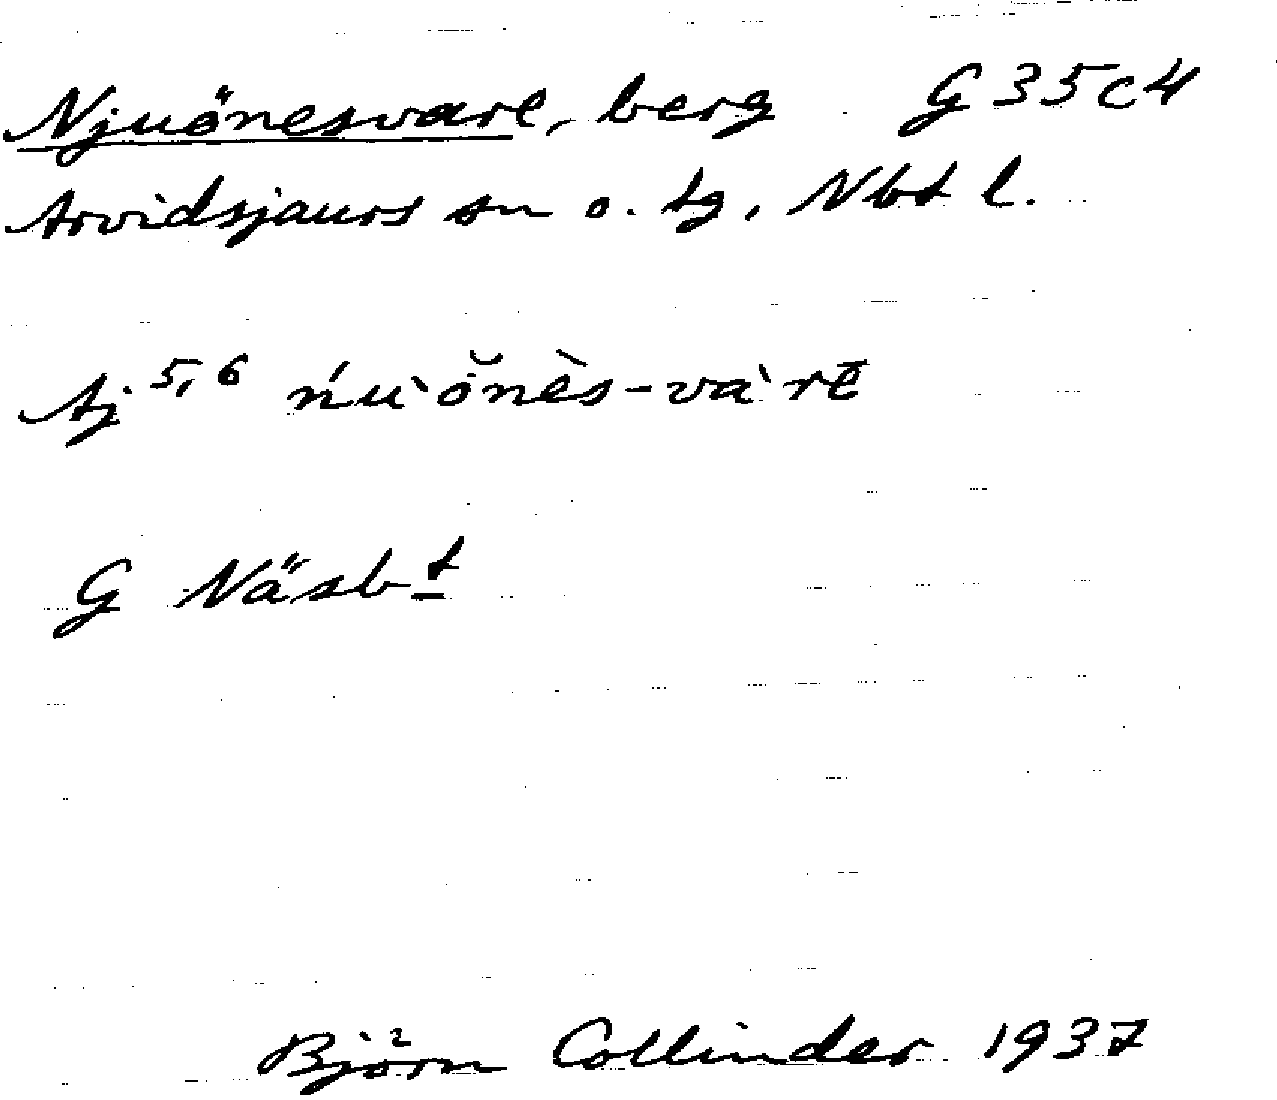 Njuönesvare, berg G 35 c 4
Arvidsjaurs sn o. tg, Nbt l.
Aj 5,6 ńuˋŏ̇nès-vaˋrē
G Näsbt
Björn Collinder 1937